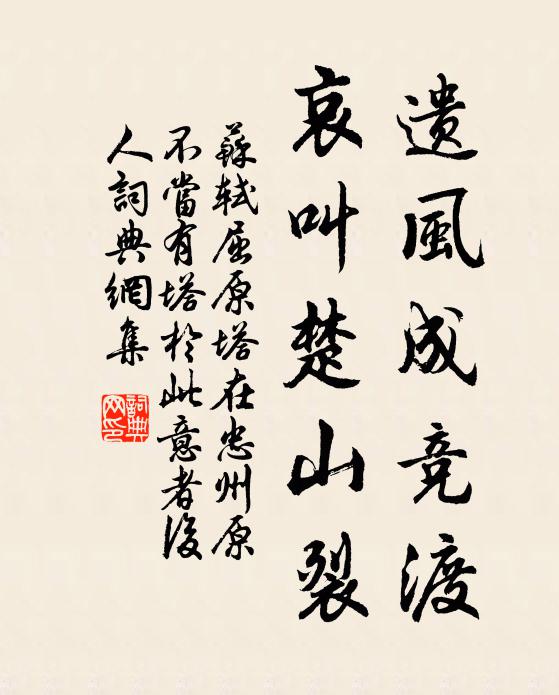 遗風成竞渡
哀叫楚山裂
蘇軾屈原塔在忠州原
不當有塔於此意者後
人詞典網集
詞典
网印